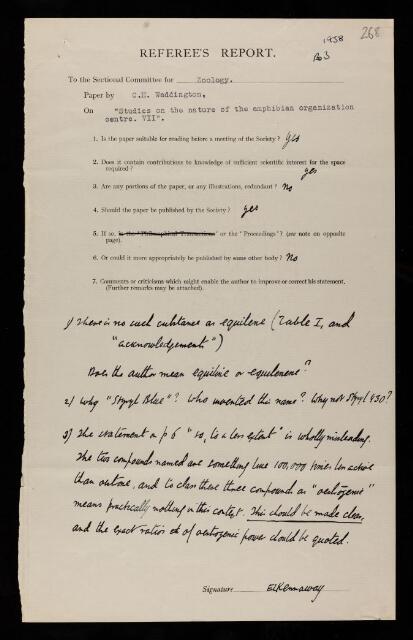 268
1938
B 3
REFEREE'S REPORT.
To the Sectional Committee for Zoology.
Paper by C.H. Waddington,
On "Studies on the nature of the amphibian organization
centre. VII".
1. Is the paper suitable for reading before a meeting of the Society? yes
2. Does it contain contributions to knowledge of sufficient scientific interest for the space
required? yes
3. Are any portions of the paper, or any illustrations, redundant? No
4. Should the paper be published by the Society? yes
5. If so, in the "Philosophical Transactions" or the "Proceedings"? (see note on opposite
page).
6. Or could it more appropriately be published by some other body? No
7. Comments or criticisms which might enable the author to improve or correct his statement.
(Further remarks may be attached).
1) There is no such substance as equilene (Table I, and
"acknowledgement")
Does the author mean equiline or equilenene?
2) Why "Styryl Blue"? Who invented this name? Why not Styryl 430?
3) The statement on p 6 "so, to a less extent" is wholly misleading.
The two compounds named are something like 100,000 times less active
than oestrone, and to class these three compounds as "oestrogenic"
means practically nothing in this context. This should be made clear,
and the exact ratios of oestrogenic power should be quoted.
Signature ELKennaway